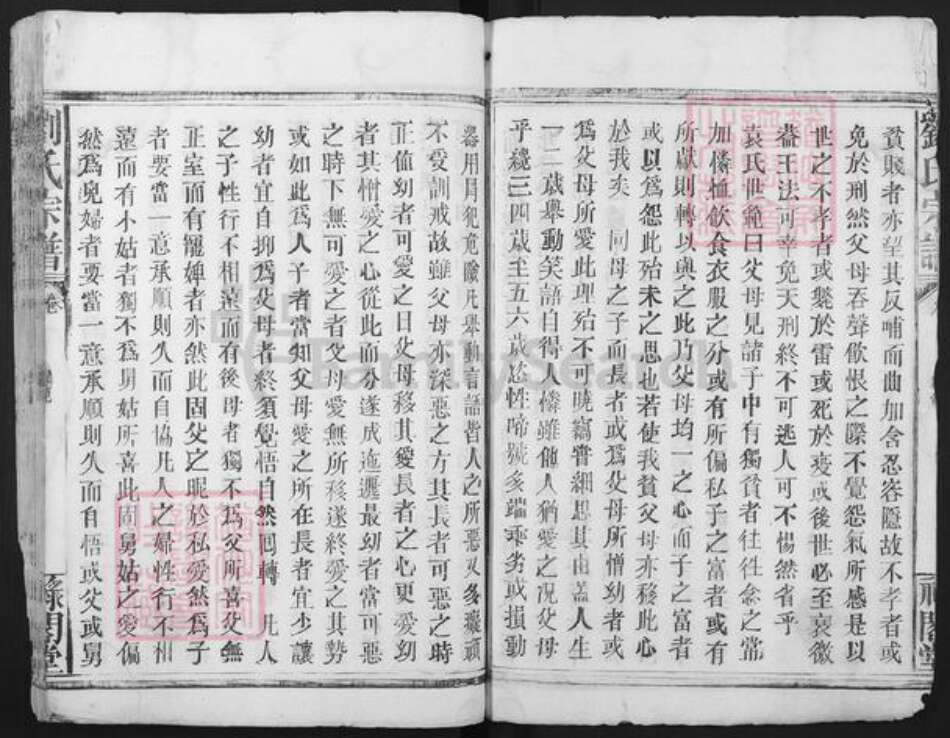 貧賤者亦望其反哺而曲加含忍容隱故不孝者或
免於刑然父母吞聲飲恨之際不覺怨氣所感是以
世之不孝者或斃於雷或死於疫或後世必至衰微
蓋王法可幸免天刑終不可逃人可不惕然省乎
袁氏世範曰父母見諸子中有獨貧者往往念之常
加憐恤飲食衣服之分或有所偏私子之富者或有
所獻則轉以與之此乃父母均一之心而子之富者
或以為怨此殆未之思也若使我貧父母亦移此心
於我矣 同母之子而長者或為父母所憎幼者或
為父母所愛此理殆不可曉竊嘗細思其由蓋人生
一二歲舉動笑語自得人憐雖他人猶愛之况父母
乎纔三四歲至五六歲恣性啼號多端乖劣或損動
器用冐犯危險凡舉動言語皆人之所惡又多癡頑
不受訓戒故雖父母亦深惡之方其長者可惡之時
正值幼者可愛之日父母移其愛長者之心更愛幼
者其憎愛之心從此而分遂成迤邐最幼者當可惡
之時下無可愛之者父母愛無所移遂終愛之其勢
或如此為人子者當知父母愛之所在長者宜少讓
幼者宜自抑為父母者終須覺悟自然回轉 凡人
之子性行不相遠而有後母者獨不為父所喜父無
正室而有寵婢者亦然此固父之昵於私愛然為子
者要當一意承順則久而自協凡人之婦性行不相
遠而有小姑者獨不為舅姑所喜此固舅姑之愛偏
然為兒婦者要當一意承順則久而自悟或父或舅
劉氏宗譜
卷
祿閣堂
劉氏宗譜
祿閣堂
FamilySearch